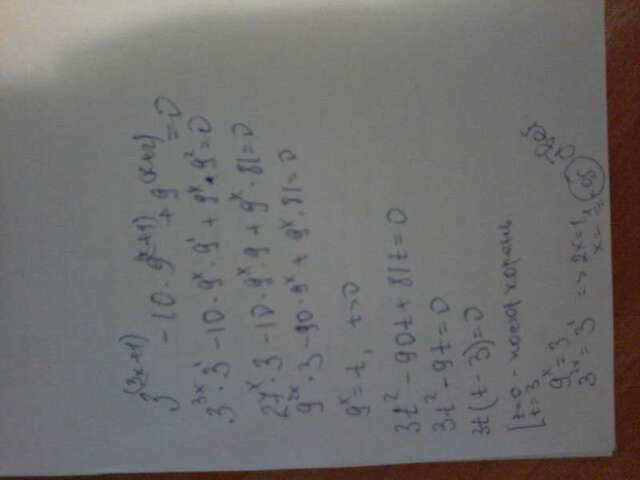 3^(3x+1) - 10·9^(x+1) + 9^(x+2) = 0
3^3x·3^1 - 10·9^x·9^1 + 9^x·9^2 = 0
27^x·3 - 10·9^x·9 + 9^x·81 = 0
9^2x·3 - 90·9^x + 9^x·81 = 0
9^x = t, t>0
3t^2 - 90t + 81t = 0
3t^2 - 9t = 0
3t(t-3) = 0
[t=0 - посто. корень.
t=3
9^x = 3
3^2x = 3^1 => 2x=1
x = 1/2 = 0,5